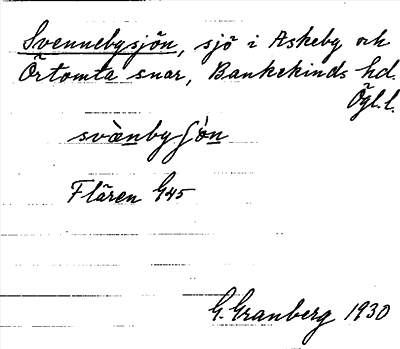 Svennebysjön, sjö i Askeby och
Örtomta snar, Bankekinds hd.
Ögl.l.
svànbyʃö̀n
Flären G45
G. Granberg 1930